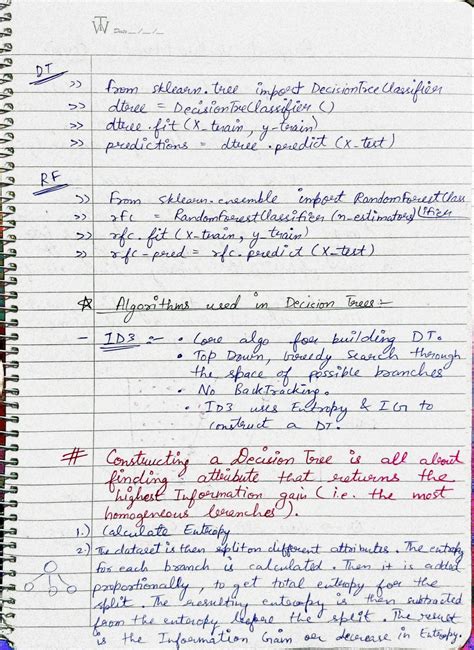 Date __/__/__
DT
>> from sklearn.tree import DecisionTreeClassifier
>> dtree = DecisionTreClassifier ()
>> dtree.fit (X_train, y-train)
>> predictions = dtree.predict (X_test)
RF
>> From sklearn.ensemble import RandomForestClass
ifier
>> rfc = RandomForestClassifier (n_estimators)
>> rfc.fit (X_train, y_train)
>> rfc-pred = rfc.predict (X_test)
Algorithms used in Decision Trees:-
- ID3 :- • Core algo for building DT.
• Top Down, Greedy Search through
the space of possible branches.
• No BackTracking.
• ID3 uses Entropy & IG to
construct a DT.
# Constructing a Decision Tree is all about
finding attribute that returns the
highest Information gain (i.e. the most
homogeneous branches).
1.) Calculate Entropy
2.) The dataset is then split on different attributes. The entropy
for each branch is calculated. Then it is added
proportionally, to get total entropy for the
split. The resulting entropy is then subtracted
from the entropy before the split. The result
is the Information Gain or decrease in Entropy.